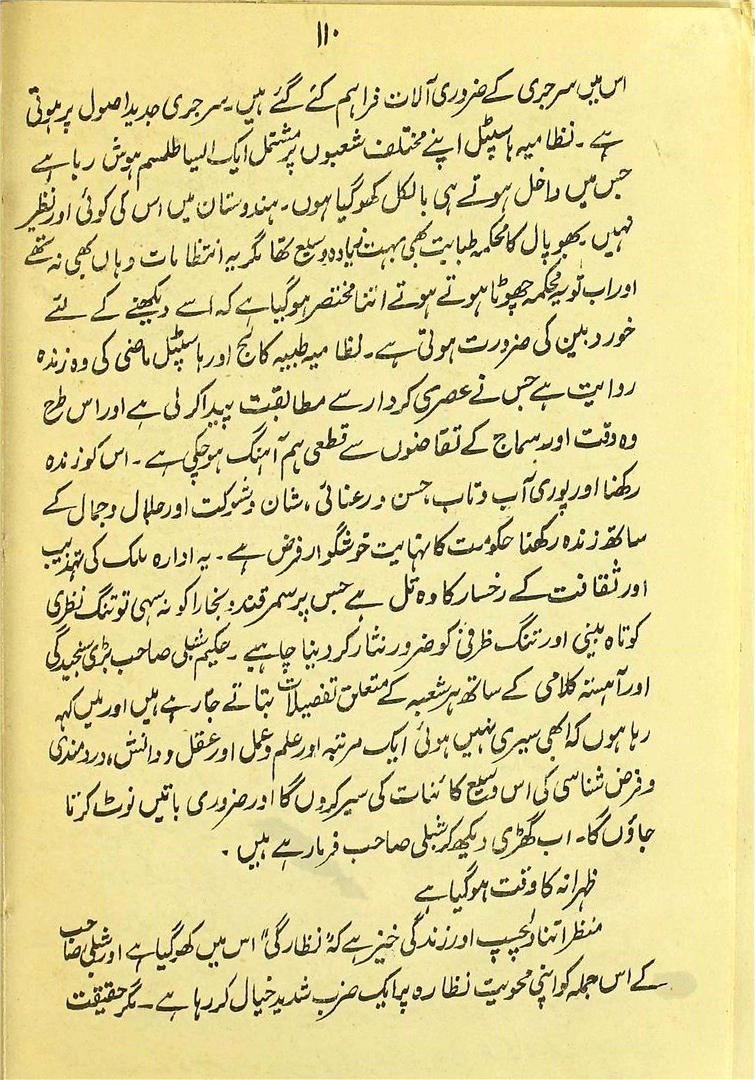 ۱۱۰
اس میں سرجری کے ضروری آلات فراہم کئے گئے ہیں۔ سرجری جدید اصول پر ہوتی
ہے۔ نظامیہ ہاسپٹل اپنے مختلف شعبوں پر مشتمل ایک ایسا طلسم ہوش ربا ہے
جس میں داخل ہوتے ہی بالکل کھو گیا ہوں۔ ہندوستان میں اس کی کوئی اور نظیر
نہیں۔ بھوپال کا محکمہ طبابت بھی بہت زیادہ وسیع تھا مگر یہ انتظامات وہاں بھی نہ تھے
اور اب تو یہ محکمہ چھوٹا ہوتے ہوتے اتنا مختصر ہو گیا ہے کہ اسے دیکھنے کے لئے
خوردبین کی ضرورت ہوتی ہے۔ نظامیہ طبیہ کالج اور ہاسپٹل ماضی کی وہ زندہ
روایت ہے جس نے عصری کردار سے مطابقت پیدا کر لی ہے اور اس طرح
وہ وقت اور سماج کے تقاضوں سے قطعی ہم آہنگ ہو چکی ہے۔ اس کو زندہ
رکھنا اور پوری آب و تاب، حسن و رعنائی، شان و شوکت اور جلال و جمال کے
ساتھ زندہ رکھنا حکومت کا نہایت خوشگوار فرض ہے۔ یہ ادارہ ملک کی تہذیب
اور ثقافت کے رخسار کا وہ تل ہے جس پر سمرقند و بخارا کو نہ سہی تو تنگ نظری
کوتاہ بینی اور تنگ ظرفی کو ضرور نثار کر دینا چاہیے۔ حکیم شبلی صاحب بڑی سنجیدگی
اور آہستہ کلامی کے ساتھ ہر شعبہ کے متعلق تفصیلات بتاتے جا رہے ہیں اور میں کہہ
رہا ہوں کہ ابھی سیری نہیں ہوئی ایک مرتبہ اور علم و عمل اور عقل و دانش، دردمندی
و فرض شناسی کی اس وسیع کائنات کی سیر کروں گا اور ضروری باتیں نوٹ کرتا
جاؤں گا۔ اب گھڑی دیکھ کر شبلی صاحب فرما رہے ہیں۔
ظہرانہ کا وقت ہو گیا ہے
منظر اتنا دلچسپ اور زندگی خیز ہے کہ "نظارگی" اس میں کھو گیا ہے اور شبلی صاحب
کے اس جملہ کو اپنی محویت نظارہ پر ایک ضرب شدید خیال کر رہا ہے۔ مگر حقیقت